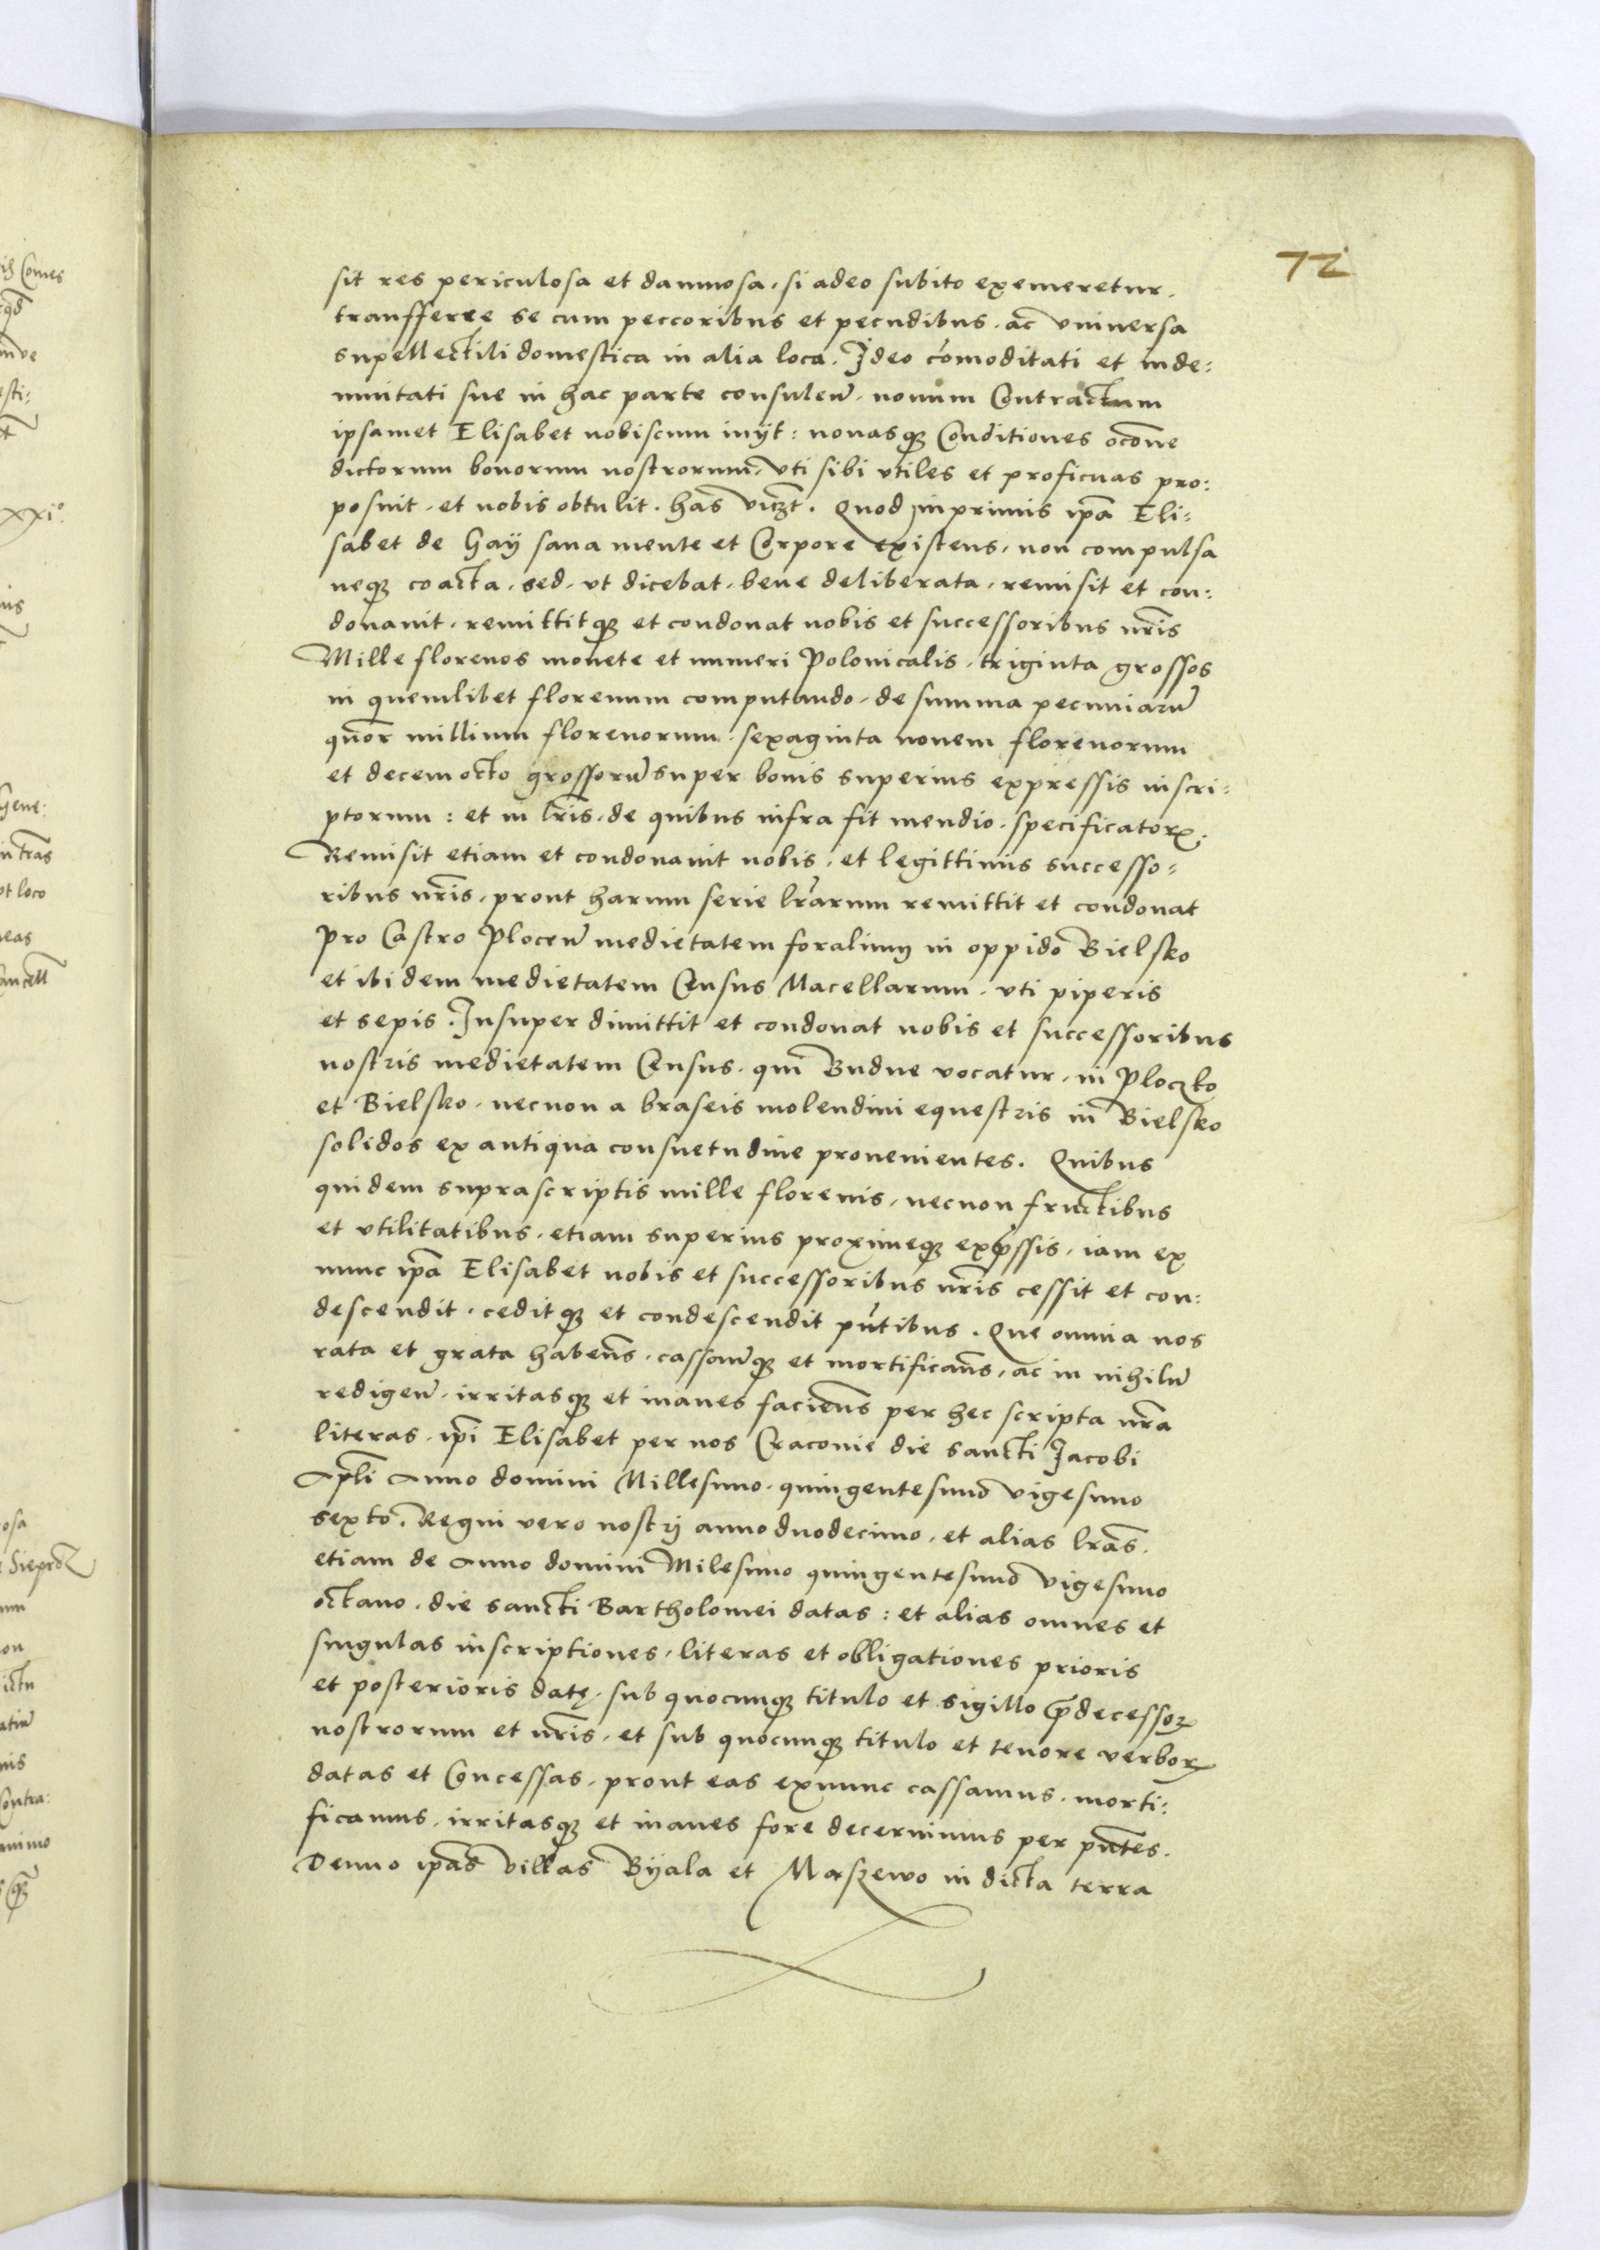 72
sit res periculosa et damnosa, si adeo subito exemeretur,
transfferre se cum peccoribus et pecudibus, ac vniuersa
supellectili domestica in alia loca. Ideo cōmoditati et inde:
mnitati sue in hac parte consuleñ, nouum Contractum
ipsamet Elisabet nobiscum inijt: nouasqȝ Conditiones
dictorum bonorum nostrorum, vti sibi vtiles et proficuas pro:
posuit, et nobis obtulit. has viczt. Quod inprimis ipã Eli:
sabet de Gaÿ sana mente et Corpore existens, non compulsa
neqȝ coacta, sed, vt dicebat, bene deliberata, remisit et con:
donauit, remittitqȝ et condonat nobis et successoribus nr̃is
Mille florenos monete et numeri Polonicalis, triginta grossos
in quemlibet florenum computando, de summa pecuniarũ
quõr millium florenorum sexaginta nouem florenorum
et decem octo grossorũ super bonis superius expressis inscri:
ptorum: et in lr̃is, de quibus infra fit mendio, specificatorꝝ.
Remisit etiam et condonauit nobis, et legittimis successo:
ribus nr̃is, prout harum serie lr̃arum remittit et condonat
pro Castro Ploceñ medietatem foralium in oppido Bielsko
et ibidem medietatem Census Macellarum, vti piperis
et sepis. Insuper dimittit et condonat nobis et successoribus
nostris medietatem Census, qui Budne vocatur, in Ploczko
et Bielsko, necnon a braseis molendini equestris in Bielsko
solidos ex antiqua consuetudine prouenientes. Quibus
quidem suprascriptis mille florenis, necnon fructibus
et vtilitatibus, etiam superius proximeqȝ expssis, iam ex
nunc ipã Elisabet nobis et successoribus nr̃is cessit et con:
descendit, ceditqȝ et condescendit pñtibus. Que omnia nos
rata et grata habeñs, cassañqȝ et mortificañs, ac in nihilũ
redigeñ, irritasqȝ et inanes facieñs per hec scripta nr̃a
literas, ipĩ Elisabet per nos Cracouie die sancti Jacobi
Apl̃i Anno domini Millesimo, quingentesimo vigesimo
sexto. Regni vero nostrj anno duodecimo, et alias lr̃as,
etiam de Anno domini Milesimo quingentesimo vigesimo
octauo, die sancti Bartholomei datas: et alias omnes et
singulas inscriptiones, literas et obligationes prioris
et posterioris datę, sub quocunqȝ titulo et sigillo p̃decessorꝝ
nostrorum et nr̃is, et sub quocunqȝ titulo et tenore verborꝝ
datas et Concessas, prout eas exnunc cassamus, morti:
ficamus, irritasqȝ et inanes fore decernimus per pñtes.
Denuo ipãs villas Bÿala et Maszewo in dicta terra